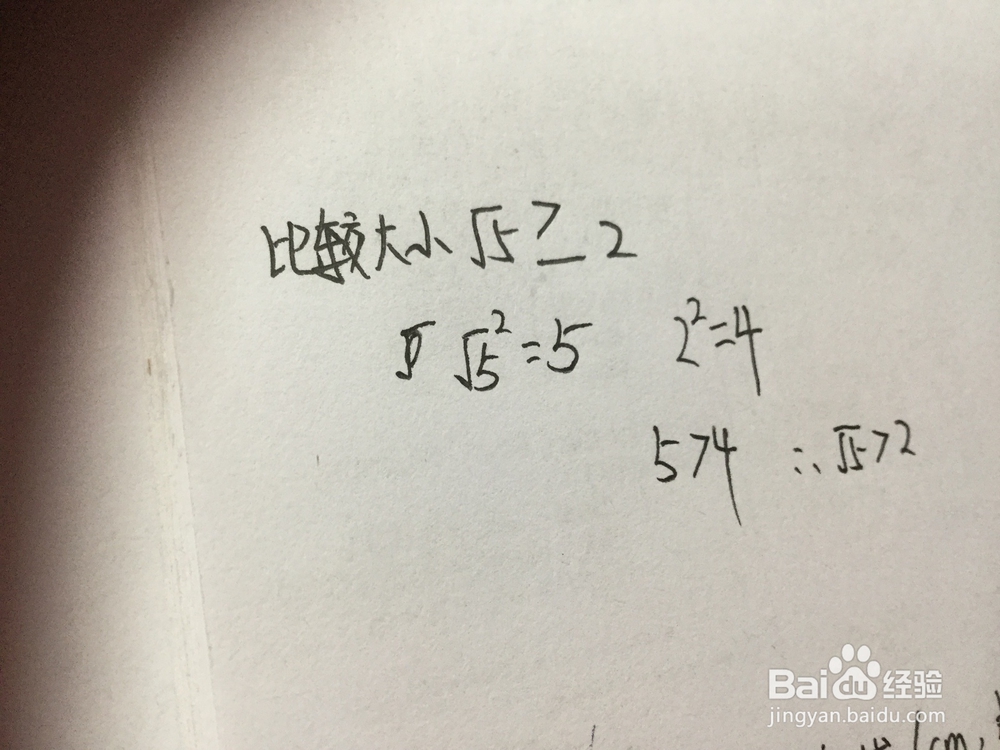 比较大小 √5 > 2
√5²=5 2²=4
5>4 ∴√5>2
Baidu经验
jingyan.baidu.com